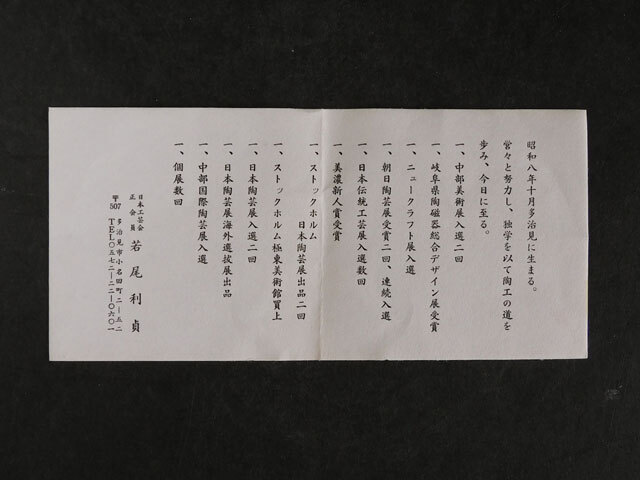 昭和八年十月多治見に生まる。
営々と努力し、独学を以て陶工の道を
歩み、今日に至る。
一、中部美術展入選二回
一、岐阜県陶磁器総合デザイン展受賞
一、ニュークラフト展入選
一、朝日陶芸展受賞二回、連続入選
一、日本伝統工芸展入選数回
一、美濃新人賞受賞
一、ストックホルム
日本陶芸展出品二回
一、ストックホルム極東美術館買上
一、日本陶芸展入選二回
一、日本陶芸展海外選抜展出品
一、中部国際陶芸展入選
一、個展数回
日本工芸会
正会員
若尾利貞
〒507
多治見市小名田町二ー五二
TEL〇五七二ー二二ー〇六〇一